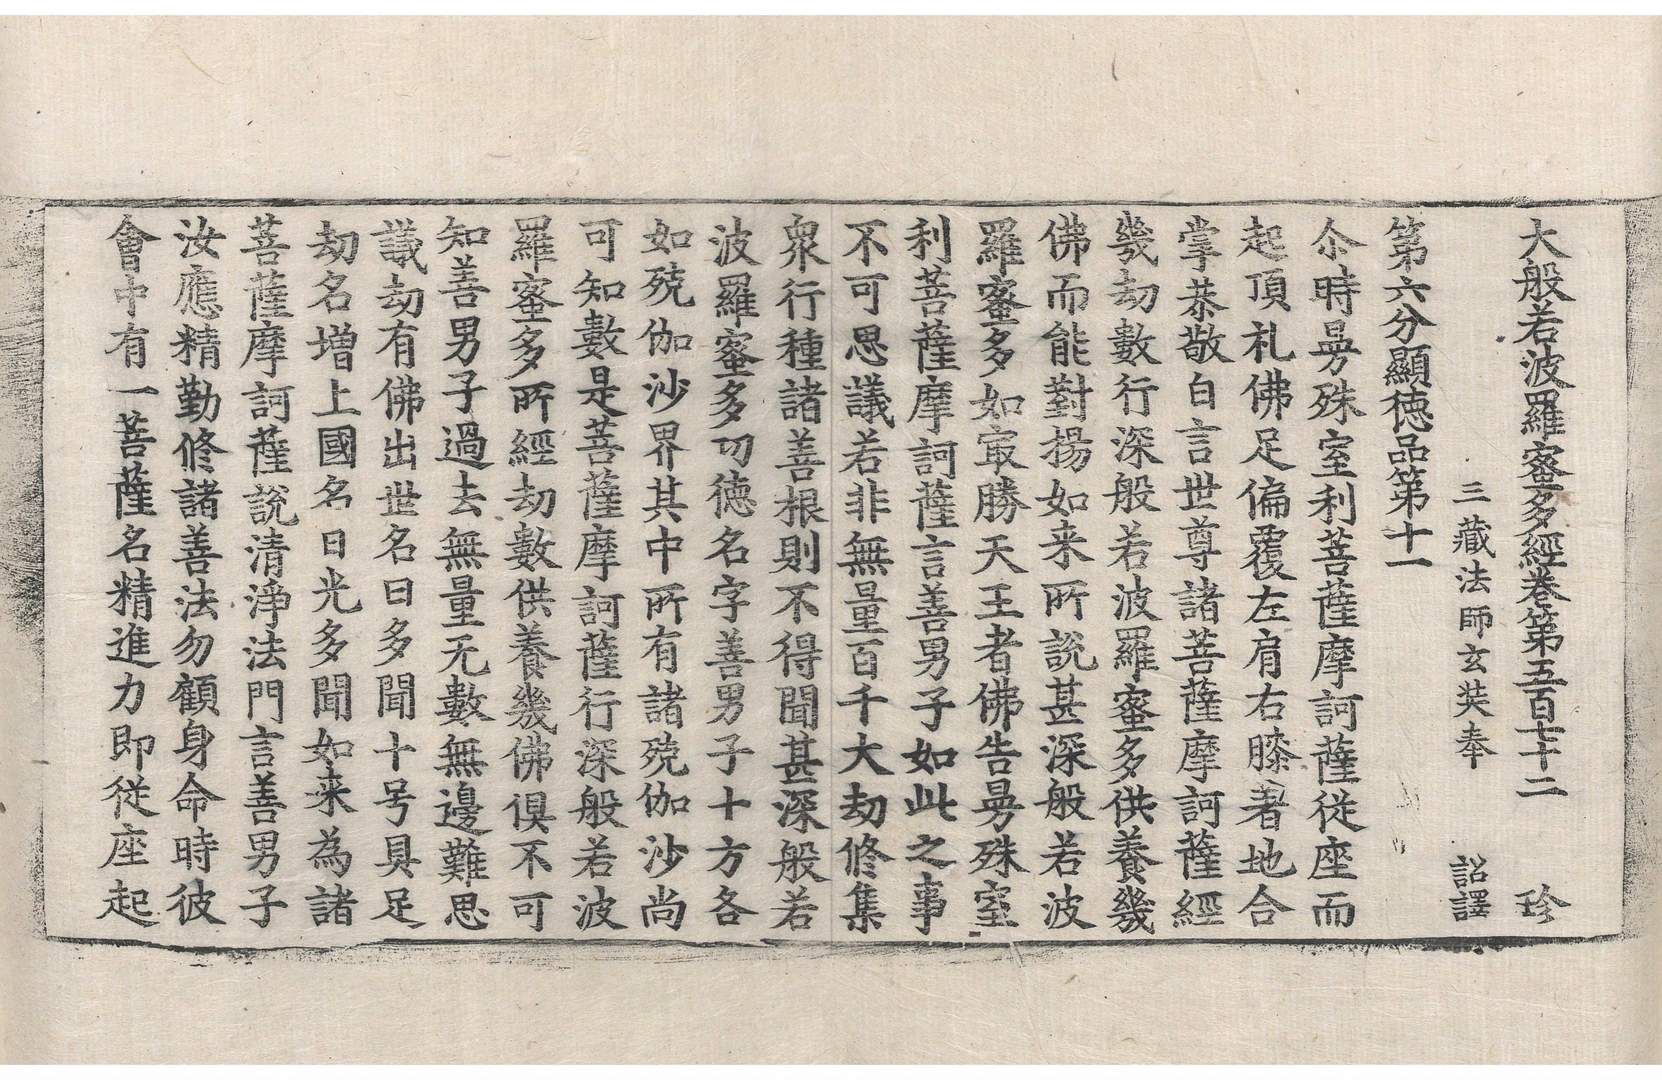 大般若波羅蜜多經卷第五百七十二　珍
三藏法師玄奘奉　詔譯
第六分顯德品第十一
尒時曼殊室利菩薩摩訶薩從座而
起頂礼佛足偏覆左肩右膝著地合
掌恭敬白言世尊諸菩薩摩訶薩經
幾劫數行深般若波羅蜜多供養幾
佛而能對揚如来所說甚深般若波
羅蜜多如㝡勝天王者佛告曼殊室
利菩薩摩訶薩言善男子如此之事
不可思議若非無量百千大劫修集
衆行種諸善根則不得聞甚深般若
波羅蜜多㓛德名字善男子十方各
如殑伽沙界其中所有諸殑伽沙尚
可知數是菩薩摩訶薩行深般若波
羅蜜多所經劫數供養幾佛俱不可
知善男子過去無量无數無邊難思
議劫有佛出世名曰多聞十号具足
劫名增上國名日光多聞如来為諸
菩薩摩訶薩說清淨法門言善男子
汝應精勤修諸善法勿顧身命時彼
會中有一菩薩名精進力即從座起